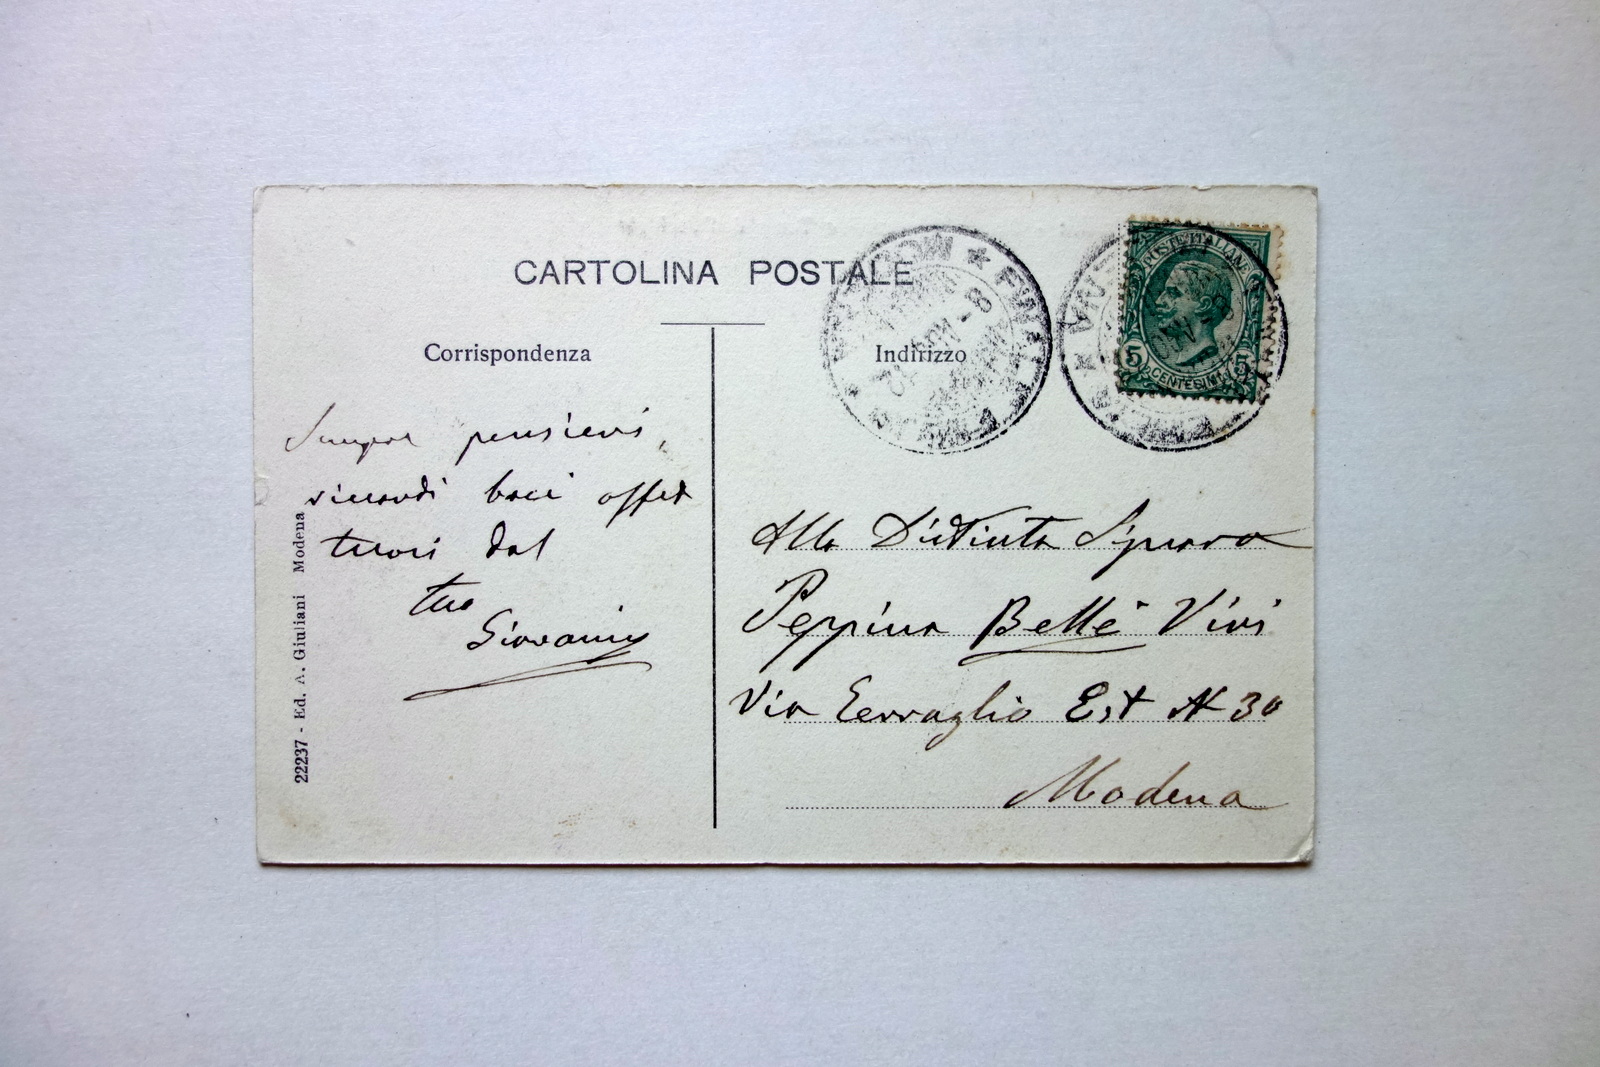 CARTOLINA POSTALE
Corrispondenza
Indirizzo
POSTE ITALIANE
5 5
CENTESIMI
Sempre pensieri,
ricordi baci affet
tuosi dal
tuo
Giovanni
Alla Distinta Signora
Peppina Bellè Vivi
Via Terraglio Est N 30
Modena
22237 - Ed. A. Giuliani Modena